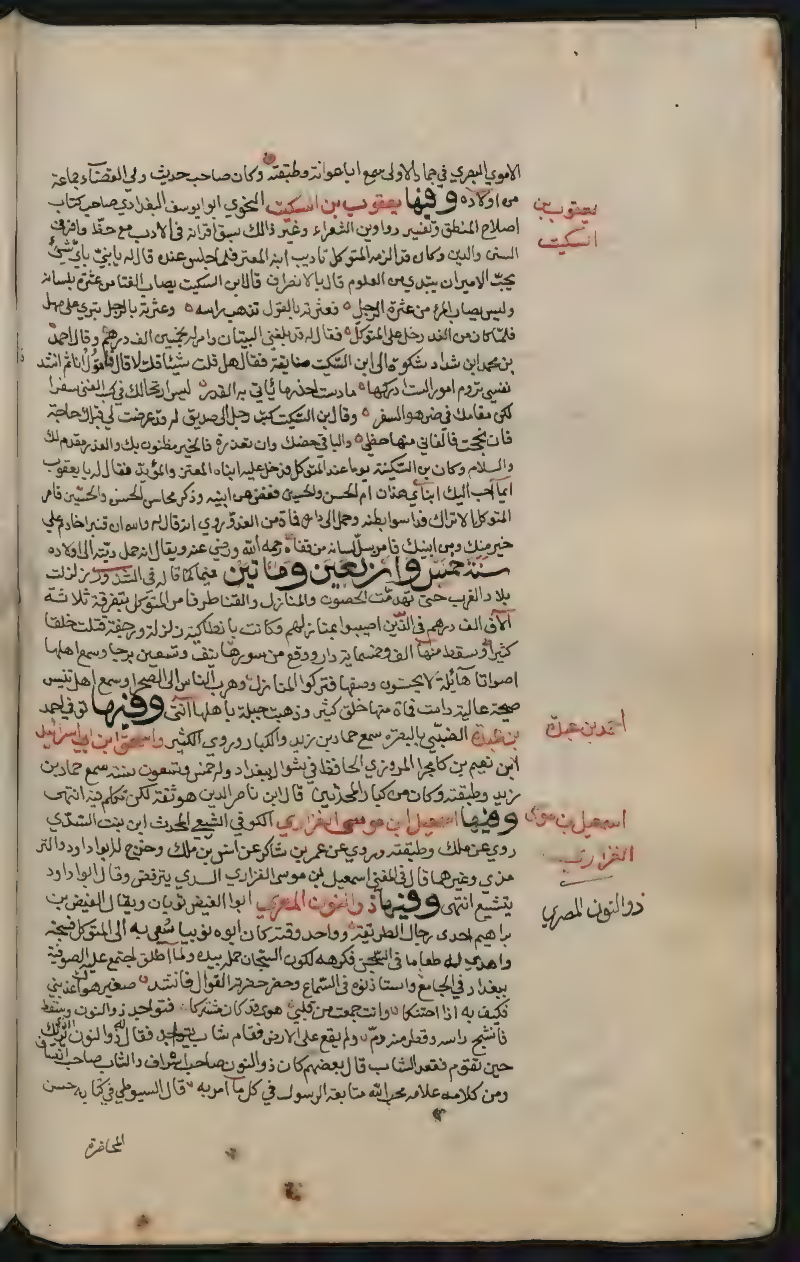 الاموي البصري في جمادي الاولى سمع ابا عوانة وطبقته وكان صاحب حديث ولي القضآء جماعة
من اولاده وفيها يعقوب بن السكيت النحوي ابو يوسف البغدادي صاحب كتاب
يعقوب بن
السكيت
اصلاح المنطق وتفسير دواوين الشعراء وغير ذالك سبق اقرانه في الادب مع حظ وافر في
السنن والدين وكان قد الزمه المتوكل تاديب ابنه المعتز فلما جلس عنده قال له يا بنيّ بايّ شئ
يحبّ الامير ان يبتدي من العلوم قال بالانصراف قال ابن السكيت يصاب الفتا من عثرة بلسانه
وليس يصاب المرء من عثرة الرجل فعثرته بالقول تذهب راسه وعثرته بالرجل تبري على مهل
فلمّا كان من الغد دخل على المتوكل فقال له قد بلغني البيتان وامر له بخمسين الف درهم وقال احمد
بن محمد ابن شداد شكوت الى ابن السّكيت ضايقة فقال هل قلت شيئا قلت لا قال فاقول انا ثم انشد
نفسي تروم امورا لست ادركها ما دمت احذر ما ياتي به القدر ليس ارتحالك في كسب الغنى سفرا
لكن مقامك في ضر هو السفر وقال ابن السّكيت كتب رجل الى صديق له قد عرضت لي قبلك حاجة
فان نجحت فالفاني منها حظي والباقي حضك وان تعذرة فالخير مظنون بك والعذر مقدم لك
والسلام وكان بن السّكيت يوما عند المتوكل فدخل عليه ابناه المعتز والمؤيد فقال له يا يعقوب
ايما احب اليك ابناي هذان ام الحسن والحسين فغض من ابنيه وذكر محاسن الحسن والحسين فامر
المتوكل الاتراك فداسوا بطنه وحمل الى داره فمات من الغد وروي انه قال له والله ان قنبرا خادم علي
خير منك ومن ابنيك فامر بسلّ لسانه من قفاه رحمه الله ورضي عنه ويقال انه حمل ديته الى اولاده
سنة خمس واربعين ومائتين فيها كما قاله في الشذور زلزلت
بلاد الغرب حتى تهدمت الحصون والمنازل والقناطر فامر المتوكل بتفرقة ثلاثة
آلاف الف درهم في الذين اصيبوا بمنازلهم وكانت بانطاكية زلزلة ورجفة قتلت خلقا
كثيرا وسقط منها الف وخمسماية دار ووقع من سورها نيف وتسعين برجا وسمع اهلها
اصواتا هآئلة لا يحسنون وصفها فتركوا المنازل وهرب الناس الى الصحرا وسمع اهل تنيس
صيحة عالية دامت فمات منها خلق كثير وذهبت جبلة باهلها انتهى وفيها توفي احمد
احمد بن عبدة
بن عبدة الضّبّي بالبصره سمع حماد بن زيد والكبار وروي الكثير واسحق ابن ابي اسرائيل
ابن نعيم بن كامجرا المروزي الحافظ في شوال ببغداد وله خمس وتسعون سنة سمع حماد بن
زيد وطبقته وكان من كبار المحدثين قال ابن ناصر الدين هو ثقة لكن تكلم فيه انتهى
وفيها اسمعيل ابن موسى الفزاري الكوفي الشيعي المحدث ابن بنت السّدّي
اسمعيل بن موسى
الفزاري
روي عن ملك وطبقته وروي عن عمر بن شاكر عن انس بن ملك وخرج له ابو داود والتر
مذي وغيرهما قال في المغني اسمعيل بن موسى الفزاري السدي يترفض وقال ابو داود
يتشيع انتهى وفيها ذو النون المصري ابو الفيض ثوبان ويقال الفيض بن
ذو النون المصري
براهيم احدى رجال الطريقة وواحد وقته كان ابوه نوبيا سُعي به الى المتوكل فسجنه
واهدي له طعاما في السّجن فكرهه لكون السّجّان حمله بيده ولما اطلق اجتمع عليه الصوفية
ببغداد في الجامع واستاذنوه في السّماع وحضر حضرته القوال فانشد صغير هواك عذبني
فكيف به اذا احتنكا وانت جمعت من قلبي هوى قد كان مشتركا فتواجد ذو النون وسقط
فانشج راسه وقطر منه دم ولم يقع على الارض فقام شاب يتواجد فقال له ذو النون الذي يراك
حين تقوم فقعد الشاب قال بعضهم كان ذو النون صاحب اشراف والشاب صاحب انصاف
ومن كلامه علامة محب الله متابعة الرسول في كل ما امر به قال السيوطي في كتابه حسن
المحاضرة